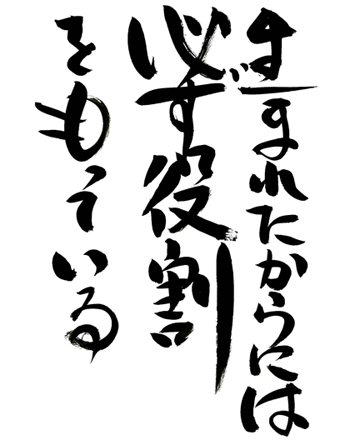 生まれたからには
必ず役割
をもっている